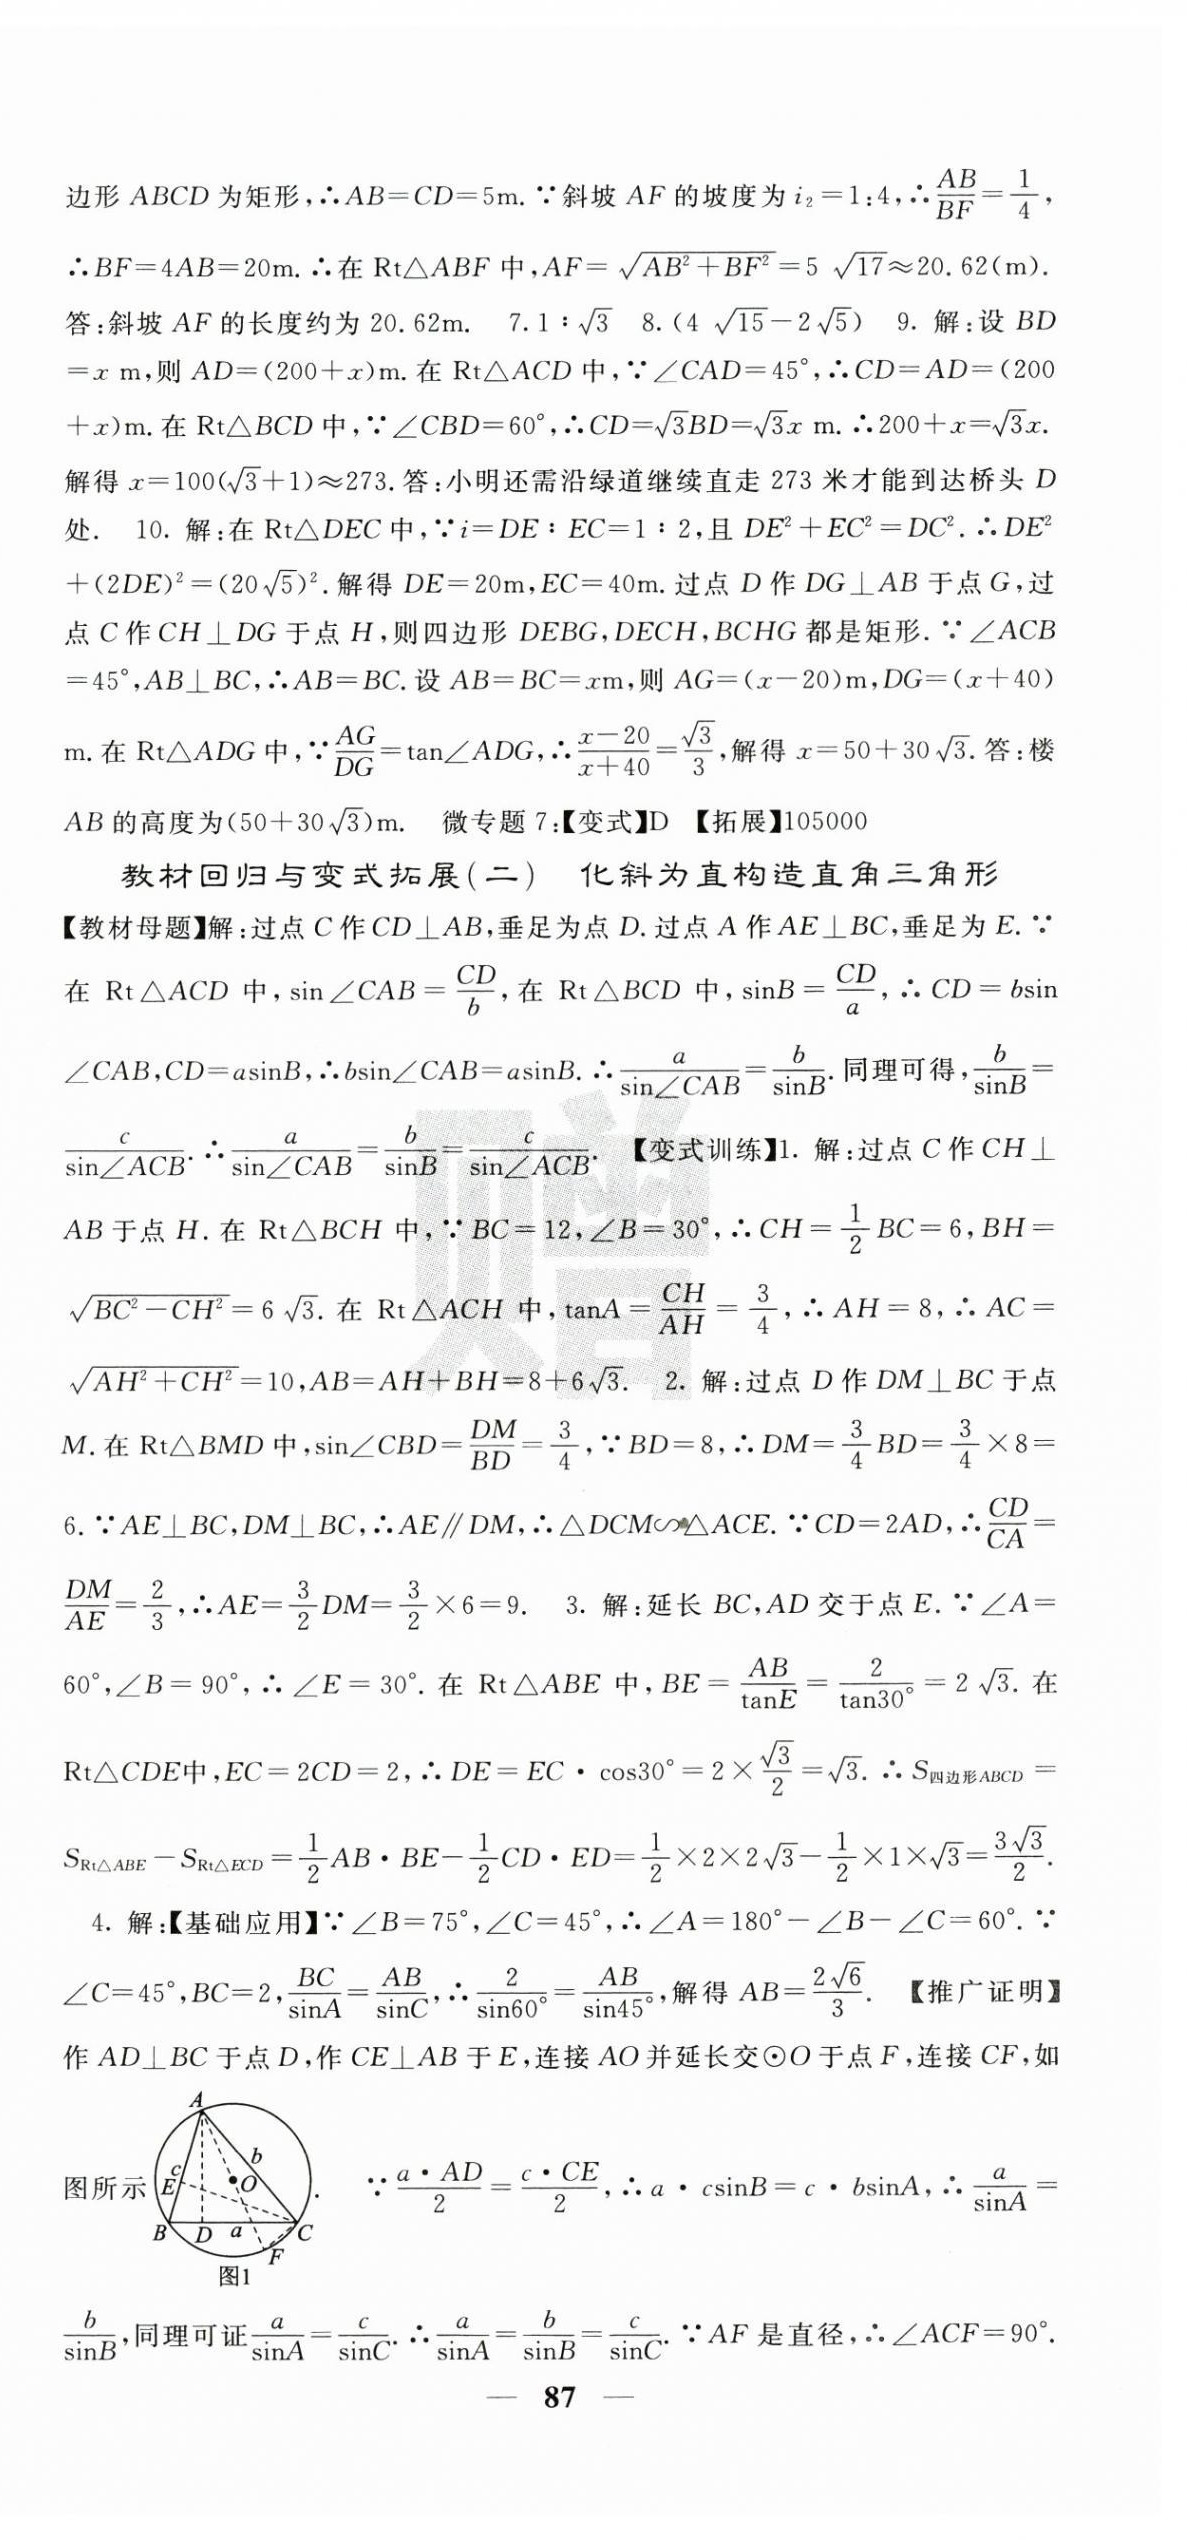 边形 ABCD 为矩形,∴AB=CD=5m.∵斜坡 AF 的坡度为 i₂=1:4,∴AB/BF=1/4,
∴BF=4AB=20m.∴在 Rt△ABF 中,AF=√(AB²+BF²)=5√17≈20.62(m).
答:斜坡 AF 的长度约为 20.62m. 7.1∶√3 8.(4√15-2√5) 9. 解:设 BD
=x m,则 AD=(200+x)m.在 Rt△ACD 中,∵∠CAD=45°,∴CD=AD=(200
+x)m.在 Rt△BCD 中,∵∠CBD=60°,∴CD=√3BD=√3x m.∴200+x=√3x.
解得 x=100(√3+1)≈273.答:小明还需沿绿道继续直走 273 米才能到达桥头 D
处. 10. 解:在 Rt△DEC 中,∵i=DE∶EC=1∶2,且 DE²+EC²=DC².∴DE²
+(2DE)²=(20√5)².解得 DE=20m,EC=40m.过点 D 作 DG⊥AB 于点 G,过
点 C 作 CH⊥DG 于点 H,则四边形 DEBG,DECH,BCHG 都是矩形.∵∠ACB
=45°,AB⊥BC,∴AB=BC.设 AB=BC=xm,则 AG=(x-20)m,DG=(x+40)
m.在 Rt△ADG 中,∵AG/DG=tan∠ADG,∴(x-20)/(x+40)=√3/3,解得 x=50+30√3.答:楼
AB 的高度为(50+30√3)m. 微专题 7:【变式】D 【拓展】105000
教材回归与变式拓展(二) 化斜为直构造直角三角形
【教材母题】解:过点 C 作 CD⊥AB,垂足为点 D.过点 A 作 AE⊥BC,垂足为 E.∵
在 Rt△ACD 中,sin∠CAB=CD/b,在 Rt△BCD 中,sinB=CD/a,∴CD=bsin
∠CAB,CD=asinB,∴bsin∠CAB=asinB.∴a/sin∠CAB=b/sinB.同理可得,b/sinB=
c/sin∠ACB.∴a/sin∠CAB=b/sinB=c/sin∠ACB. 【变式训练】1. 解:过点 C 作 CH⊥
AB 于点 H.在 Rt△BCH 中,∵BC=12,∠B=30°,∴CH=1/2BC=6,BH=
√(BC²-CH²)=6√3.在 Rt△ACH 中,tanA=CH/AH=3/4,∴AH=8,∴AC=
√(AH²+CH²)=10,AB=AH+BH=8+6√3. 2. 解:过点 D 作 DM⊥BC 于点
M.在 Rt△BMD 中,sin∠CBD=DM/BD=3/4,∵BD=8,∴DM=3/4BD=3/4×8=
6.∵AE⊥BC,DM⊥BC,∴AE∥DM,∴△DCM∽△ACE.∵CD=2AD,∴CD/CA=
DM/AE=2/3,∴AE=3/2DM=3/2×6=9. 3. 解:延长 BC,AD 交于点 E.∵∠A=
60°,∠B=90°,∴∠E=30°.在 Rt△ABE 中,BE=AB/tanE=2/tan30°=2√3.在
Rt△CDE中,EC=2CD=2,∴DE=EC·cos30°=2×√3/2=√3.∴S四边形ABCD=
SRt△ABE-SRt△ECD=1/2AB·BE-1/2CD·ED=1/2×2×2√3-1/2×1×√3=3√3/2.
4. 解:【基础应用】∵∠B=75°,∠C=45°,∴∠A=180°-∠B-∠C=60°.∵
∠C=45°,BC=2,BC/sinA=AB/sinC,∴2/sin60°=AB/sin45°,解得 AB=2√6/3. 【推广证明】
作 AD⊥BC 于点 D,作 CE⊥AB 于 E,连接 AO 并延长交⊙O 于点 F,连接 CF,如
A
c b
E O
图所示 . ∵a·AD/2=c·CE/2,∴a·csinB=c·bsinA,∴a/sinA=
B D a C
F
图1
b/sinB,同理可证a/sinA=c/sinC.∴a/sinA=b/sinB=c/sinC.∵AF 是直径,∴∠ACF=90°.
— 87 —
赠